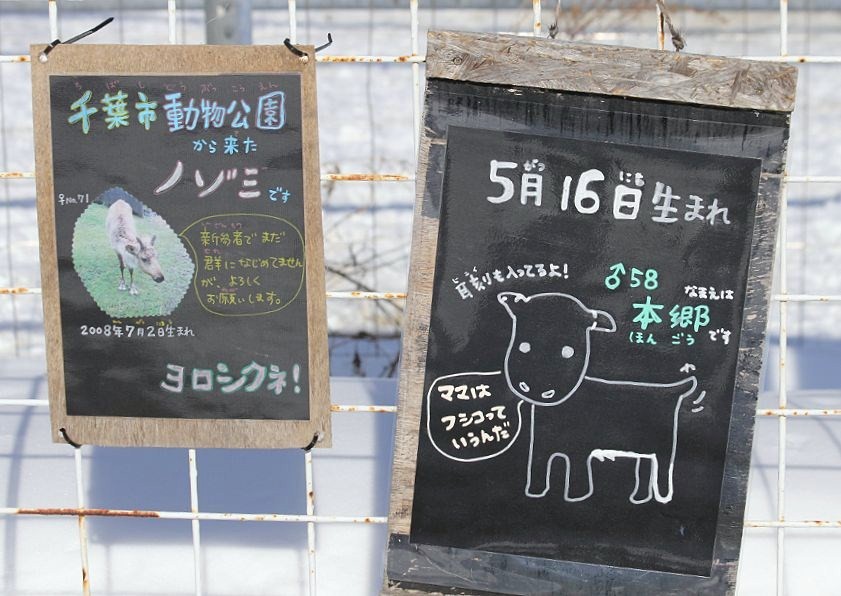 ちばしどうぶつこうえん
千葉市動物公園
から来た
ノゾミです
♀No.71
新参者でまだ
群になじめてません
が、よろしく
お願いします。
2008年7月2日生まれ
ヨロシクネ!
がつ にち
5月16日生まれ
じこく
耳刻も入ってるよ!
♂58
なまえは
本郷です
ほんごう
ママは
フシコって
いうんだ